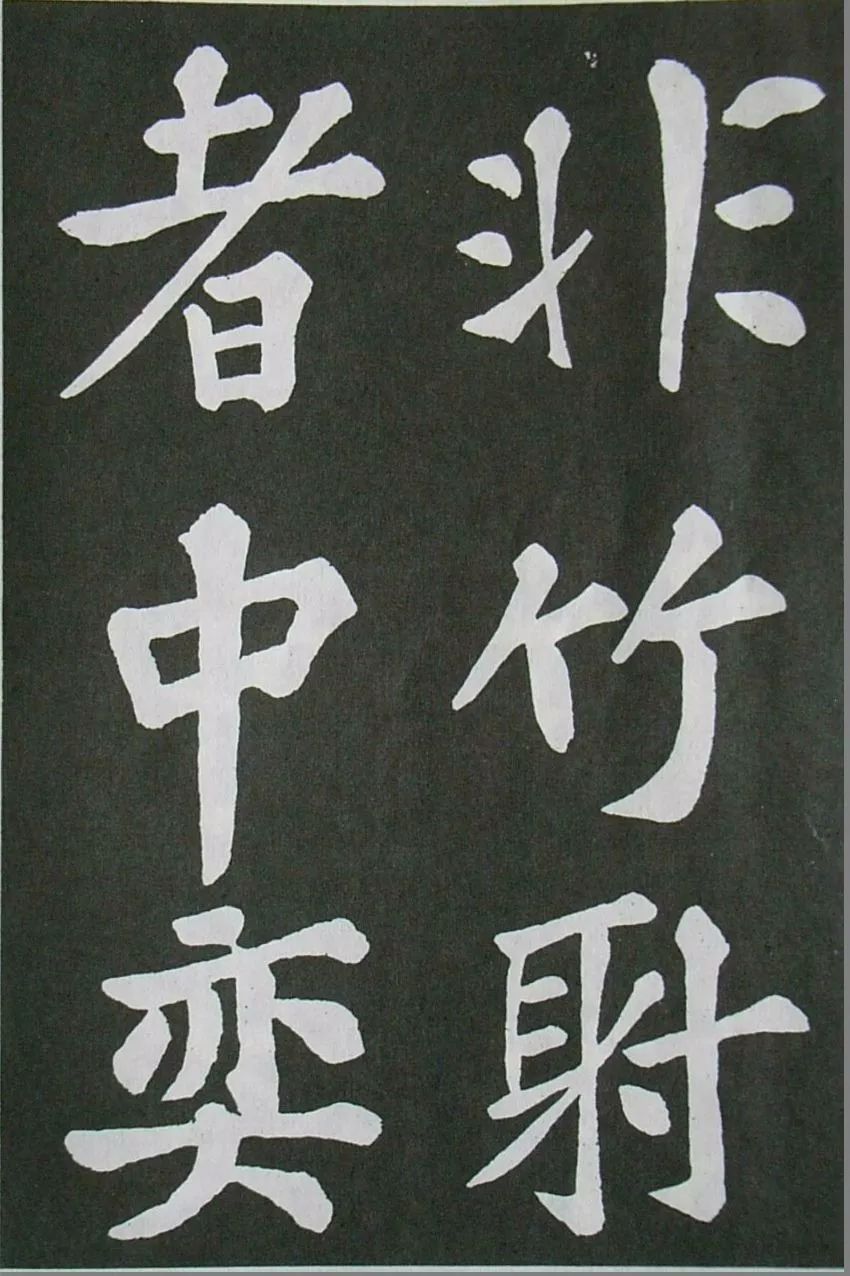 非竹射
者中奕